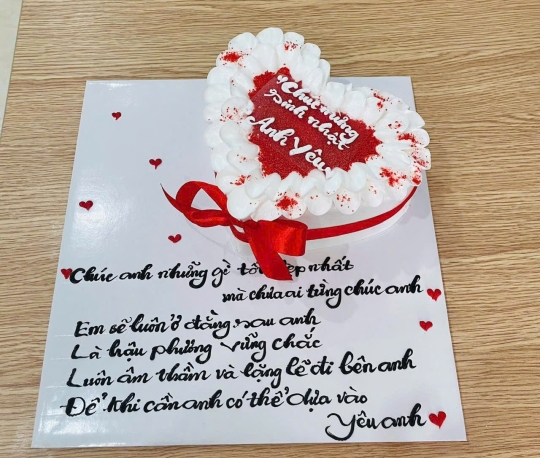 "Chúc mừng
sinh nhật
Anh Yêu
Chúc anh những gì tốt đẹp nhất
mà chưa ai từng chúc anh
Em sẽ luôn ở đằng sau anh
Là hậu phương vững chắc
Luôn âm thầm và lặng lẽ đi bên anh
Để khi cần anh có thể dựa vào
Yêu anh